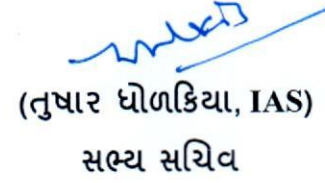 (તુષાર ધોળકિયા, IAS)
સભ્ય સચિવ